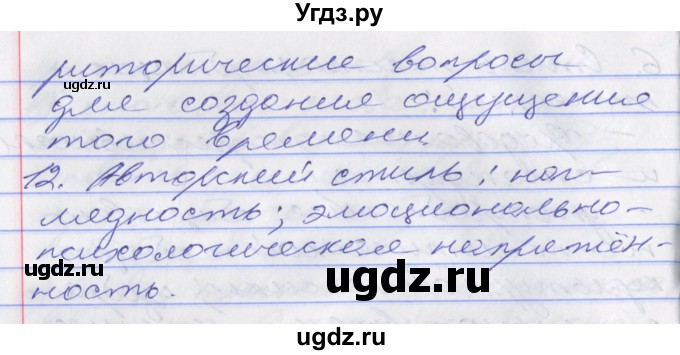 Угдз.ру
риторические вопросы
для создания ощущения
того времени.
12. Авторский стиль: наг-
лядность; эмоционально-
психологическая напряжён-
ность.
©ugdz.ru
ugdz.ru
©ugdz.ru
ugdz.ru
©ugdz.ru
ugdz.ru
ugdz.ru